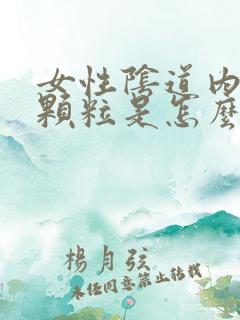 女性陰道內
顆粒是怎麼
楊月弦
未任同意禁止轉載